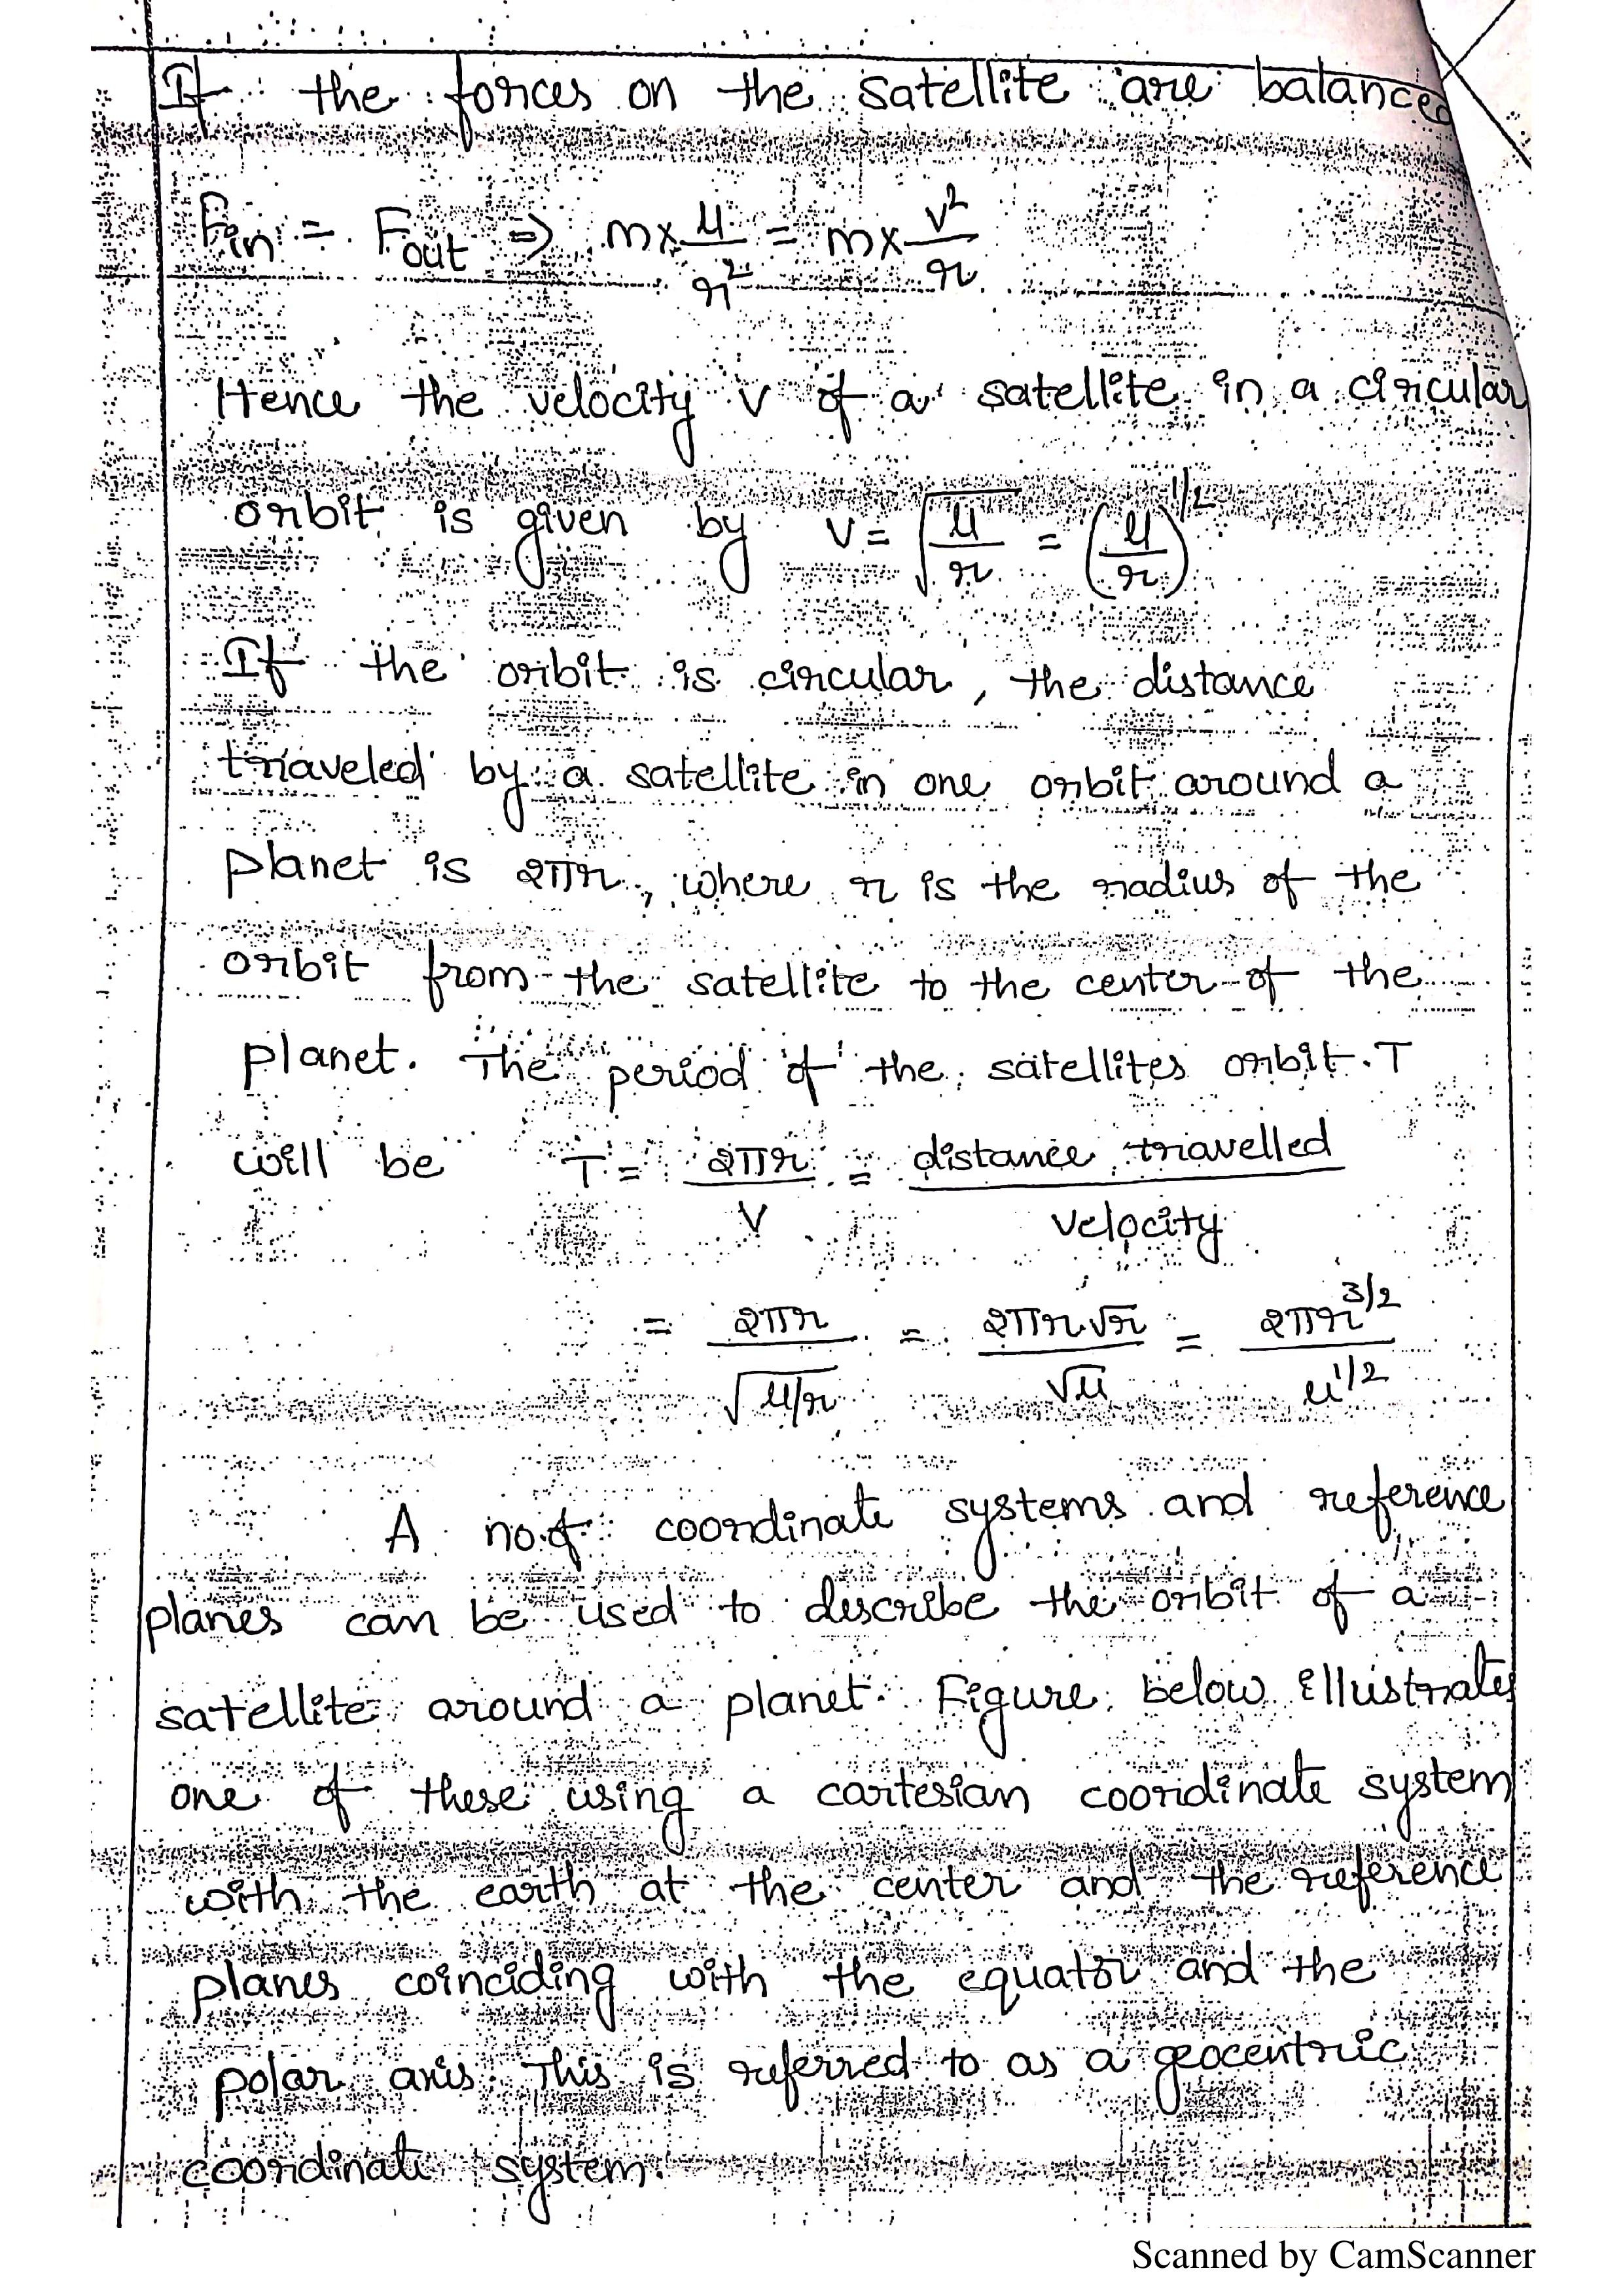 If the forces on the satellite are balanced
Fin = Fout => m x μ/r² = m x v²/r
Hence the velocity v of a satellite in a circular
orbit is given by V = √(μ/r) = (μ/r)^1/2
If the orbit is circular, the distance
traveled by a satellite in one orbit around a
planet is 2πr, where r is the radius of the
orbit from the satellite to the center of the
planet. The period of the satellites orbit T
will be T = 2πr/V = distance travelled/velocity
= 2πr/√(μ/r) = 2πr√r/√μ = 2πr^3/2/μ^1/2
A no. of coordinate systems and reference
planes can be used to describe the orbit of a
satellite around a planet. Figure below illustrates
one of these using a cartesian coordinate system
with the earth at the center and the reference
planes coinciding with the equator and the
polar axis. This is referred to as a geocentric
coordinate system.
Scanned by CamScanner